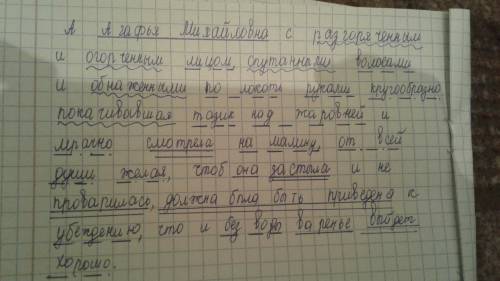 А Агафья Михайловна с разгоряченным
и огорченным лицом, спутанными волосами
и обнажёнными по локоть руками кругообразно
покачивавшая тазик над жаровней и
мрачно смотрела на малину, от всей
души желая, чтоб она застыла и не
проварилась, должна была быть приведена к
убеждению, что и без воды варенье выйдет
хорошо.